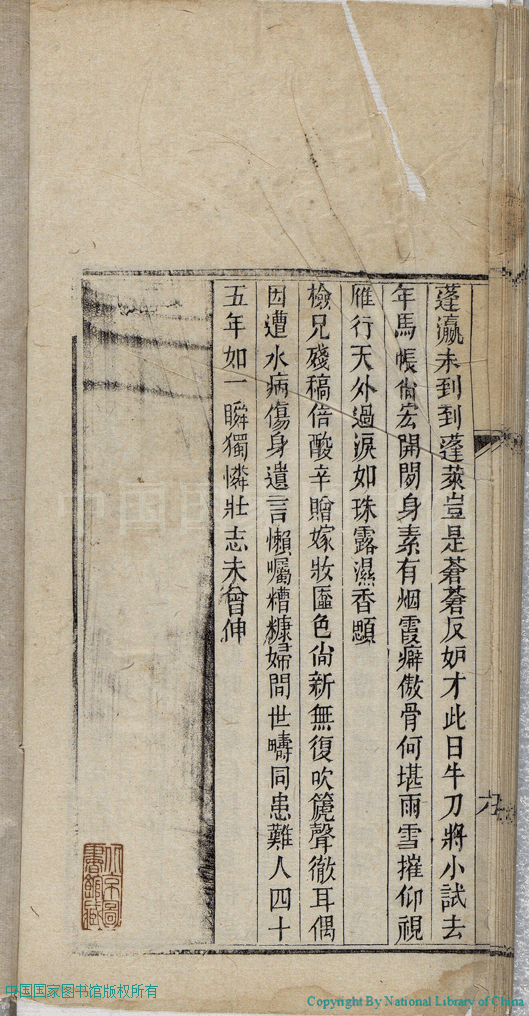 蓬瀛未到到蓬萊豈是蒼蒼反妒才此日牛刀將小試去
年馬帳尙宏開閱身素有烟霞癖傲骨何堪雨雪摧仰視
雁行天外過淚如珠露濕香顋
檢兄殘稿倍酸辛贈嫁妝匳色尙新無復吹篪聲徹耳偶
因遭水病傷身遺言懶囑糟糠婦問世疇同患難人四十
五年如一瞬獨憐壯志未曾伸
中国国家图书馆版权所有
Copyright By National Library of China